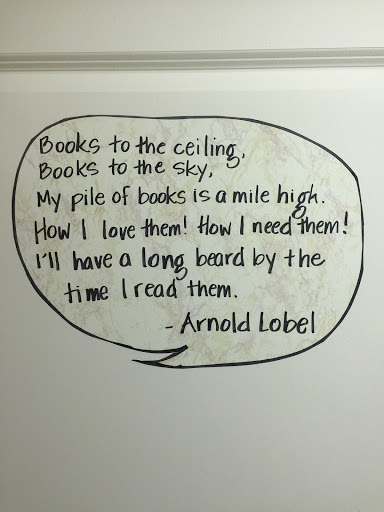 Books to the ceiling,
Books to the sky,
My pile of books is a mile high.
How I love them! How I need them!
I'll have a long beard by the
time I read them.
- Arnold Lobel